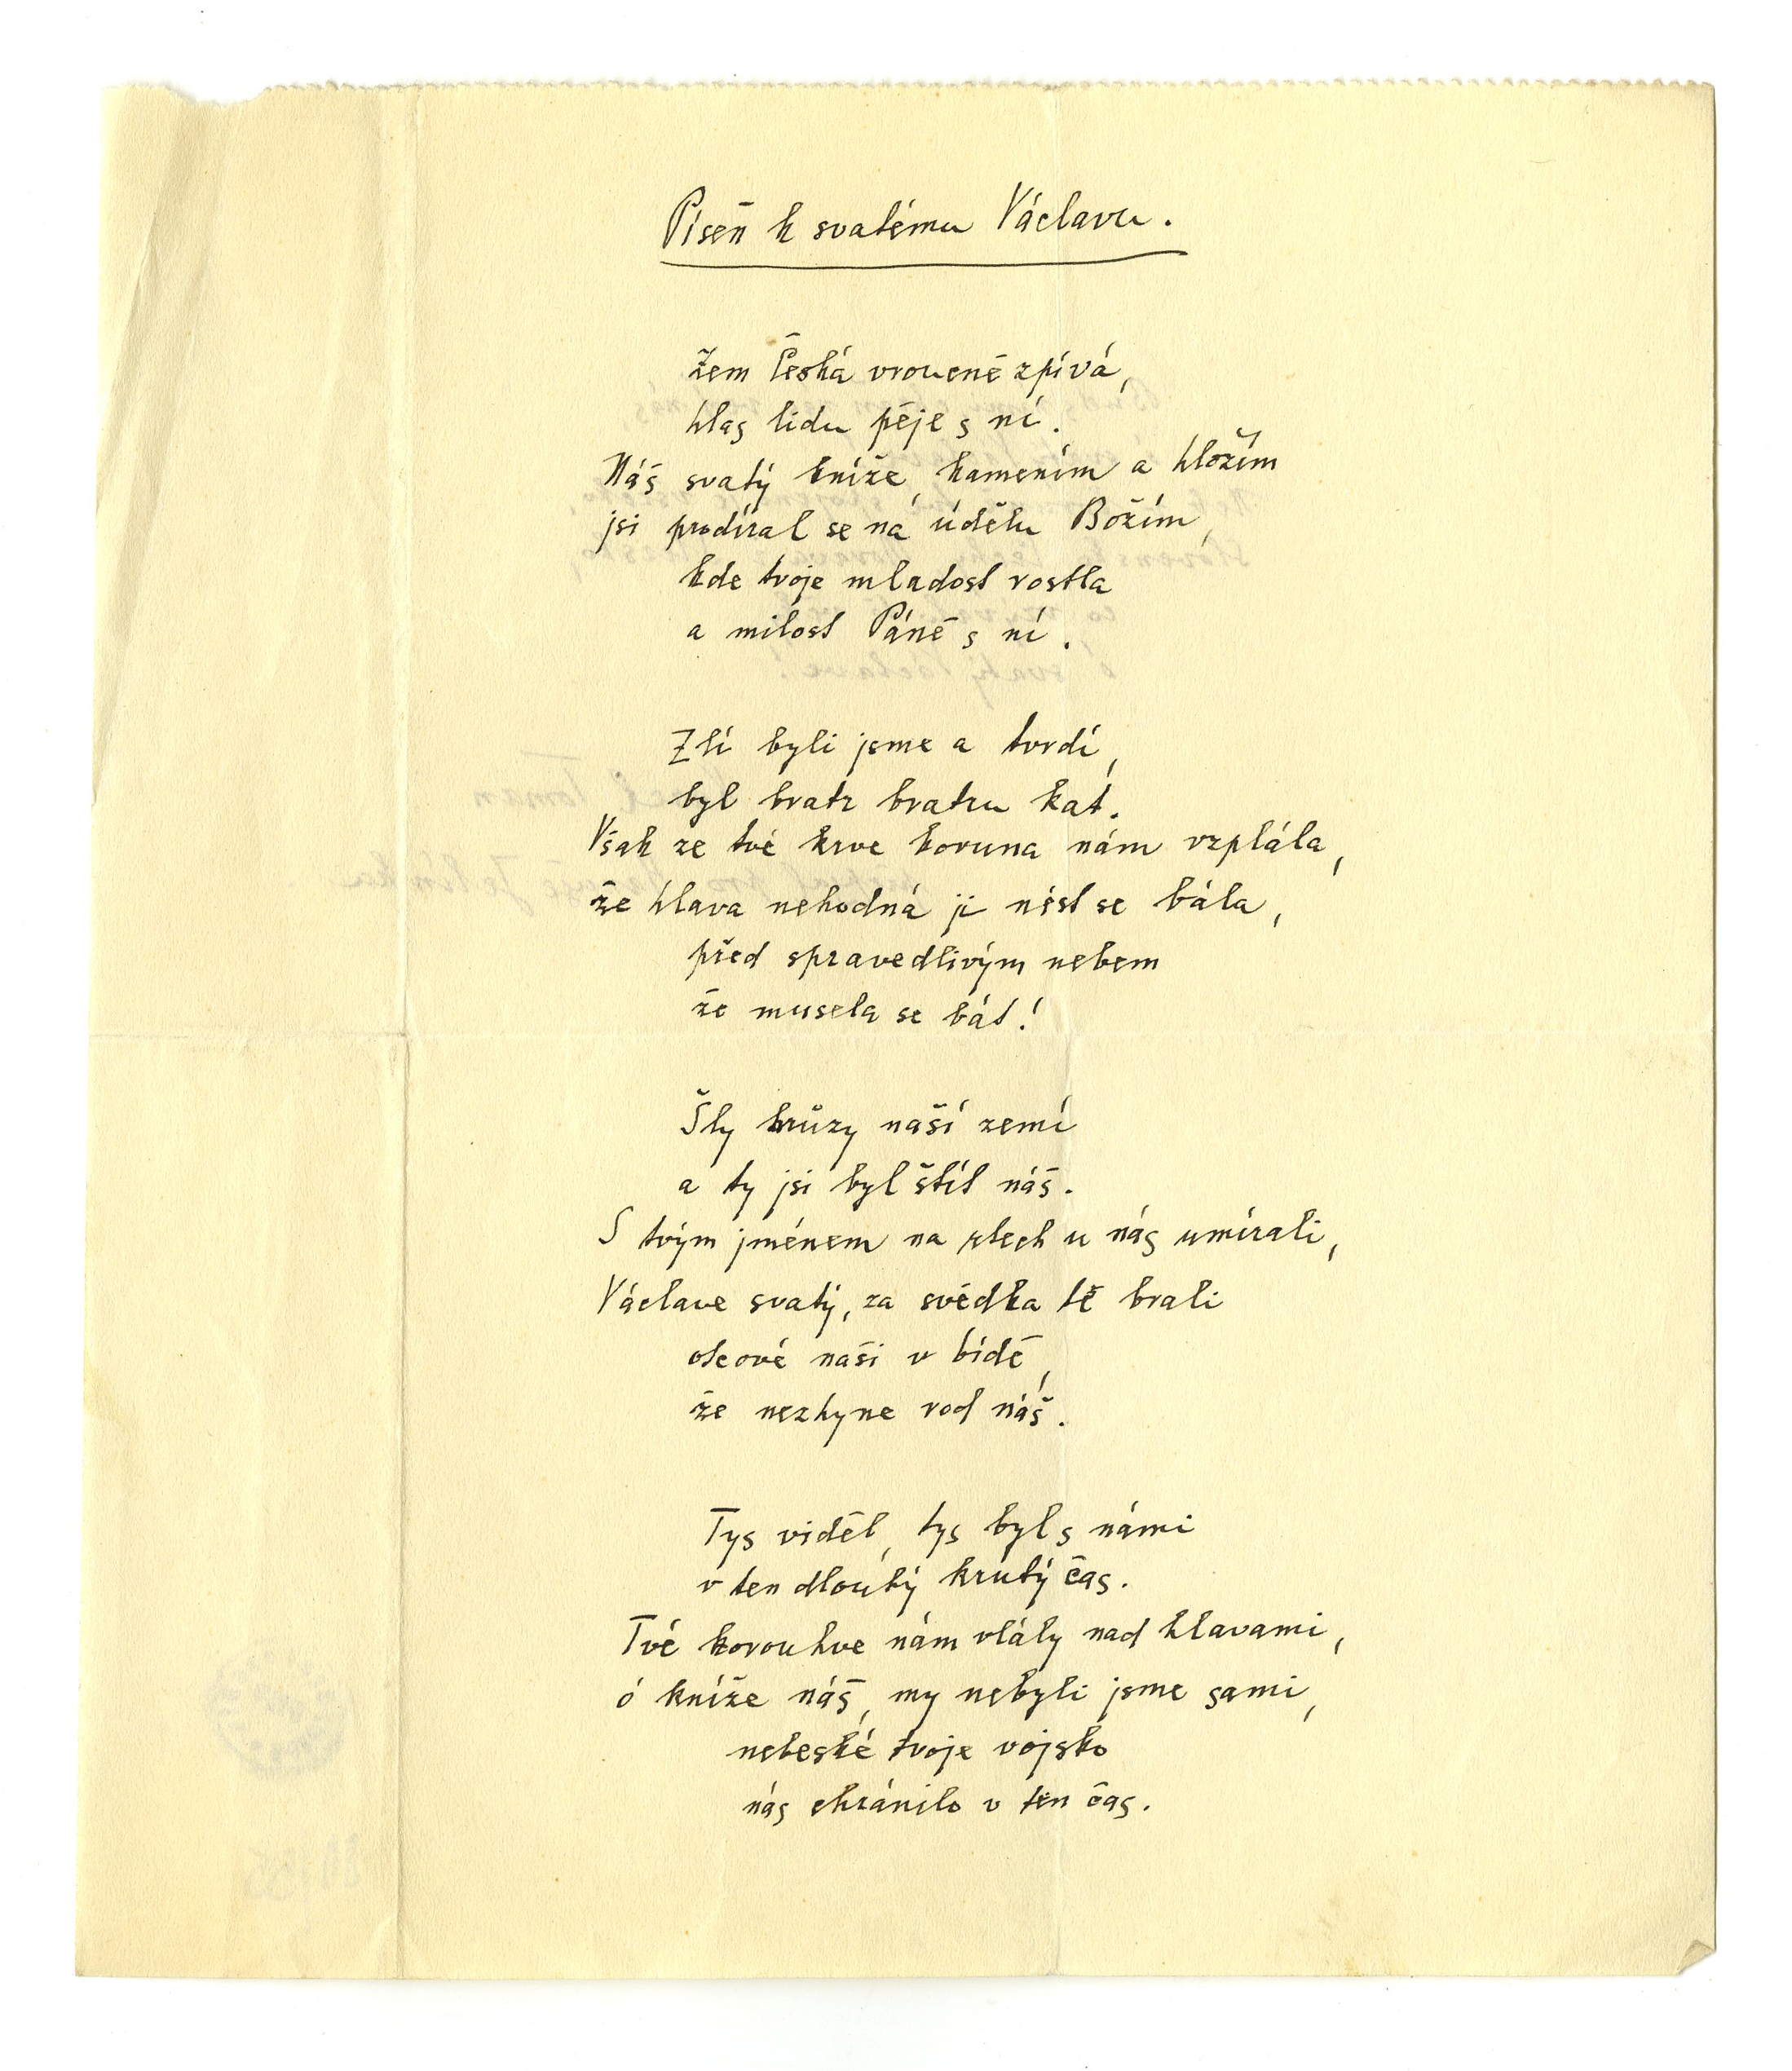 Píseň k svatému Václavu.
Zem Česká vroucně zpívá,
hlas lidu pěje s ní.
Náš svatý kníže, kamením a hložím
jsi prodíral se na údělu Božím,
kde tvoje mladost rostla
a milost Páně s ní.
Zlí byli jsme a tvrdí,
byl bratr bratru kat.
Však ze tvé krve koruna nám vzplála,
že hlava nehodná ji nést se bála,
před spravedlivým nebem
že musela se bát!
Šly hrůzy naší zemí
a ty jsi byl štít náš.
S tvým jménem na rtech u nás umírali,
Václave svatý, za svědka tě brali
otcové naši v bídě,
že nezhyne rod náš.
Tys viděl, tys byl s námi
v ten dlouhý krutý čas.
Tvé korouhve nám vlály nad hlavami,
ó kníže náš, my nebyli jsme sami,
nebeské tvoje vojsko
nás chránilo v ten čas.